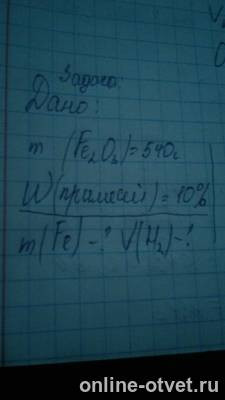 Задача:
Дано:
m (Fe₂O₃)=540г
W(примесей)=10%
m(Fe)-? V(H₂)-?
online-otvet.ru